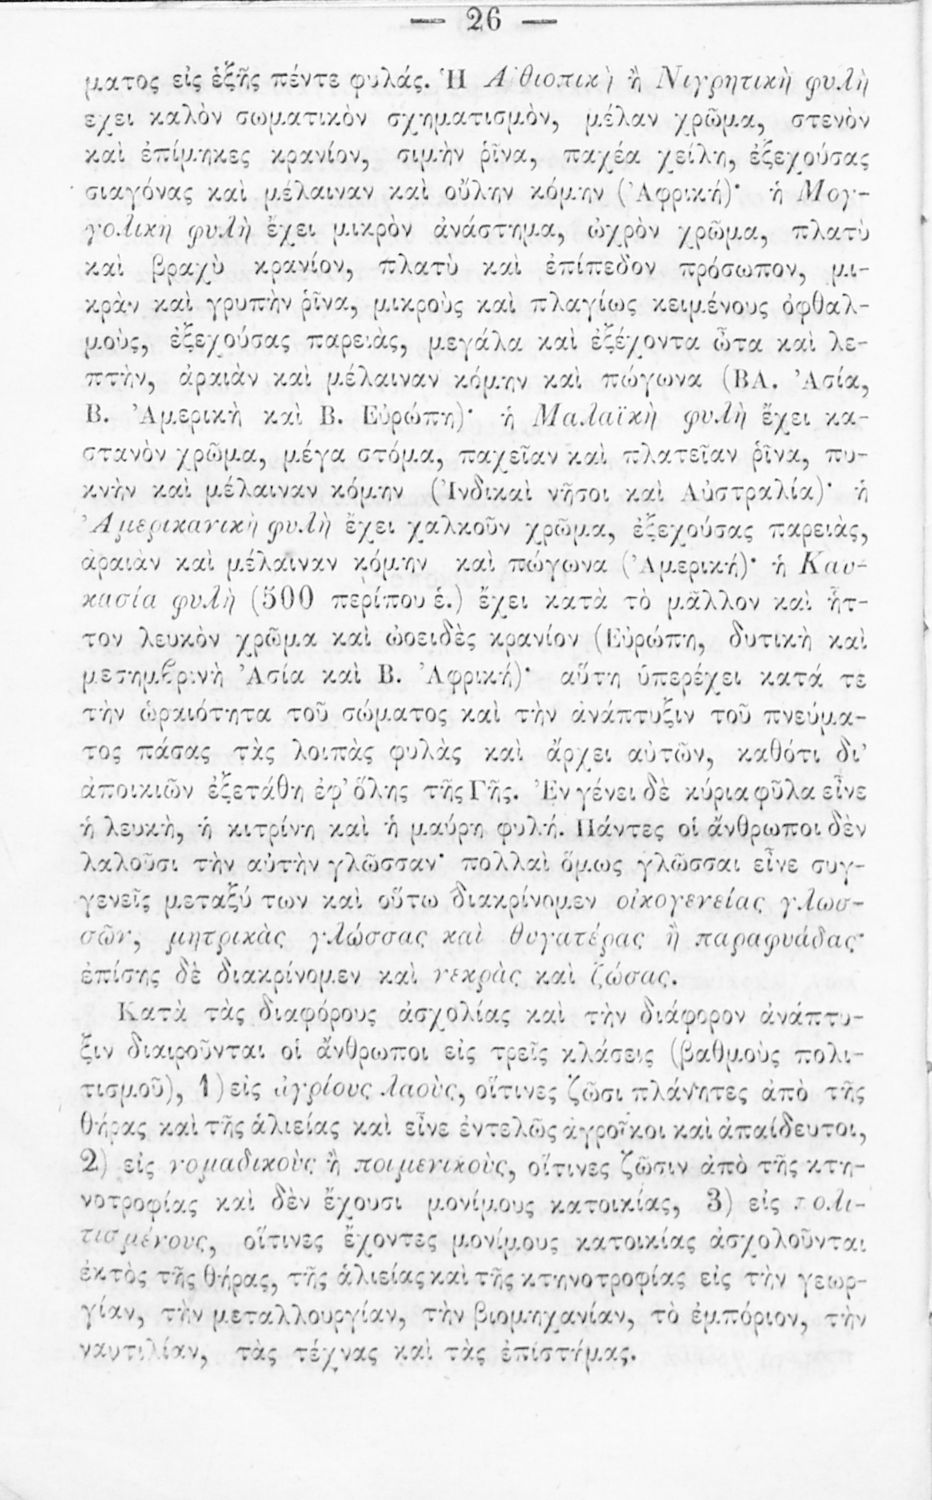 — 26 —
ματος εἰς ἑξῆς πέντε φυλάς. Ἡ Αἰθιοπικὴ ἢ Νιγρητικὴ φυλὴ
ἔχει καλὸν σωματικὸν σχηματισμὸν, μέλαν χρῶμα, στενὸν
καὶ ἐπίμηκες κρανίον, σιμὴν ῥῖνα, παχέα χείλη, ἐξεχούσας
σιαγόνας καὶ μέλαιναν καὶ οὔλην κόμην (Ἀφρική)· ἡ Μογ-
γολικὴ φυλὴ ἔχει μικρὸν ἀνάστημα, ὠχρὸν χρῶμα, πλατὺ
καὶ βραχὺ κρανίον, πλατὺ καὶ ἐπίπεδον πρόσωπον, μι-
κρὰν καὶ γρυπὴν ῥῖνα, μικροὺς καὶ πλαγίως κειμένους ὀφθαλ-
μοὺς, ἐξεχούσας παρειὰς, μεγάλα καὶ ἐξέχοντα ὦτα καὶ λε-
πτὴν, ἀραιὰν καὶ μέλαιναν κόμην καὶ πώγωνα (ΒΑ. Ἀσία,
Β. Ἀμερικὴ καὶ Β. Εὐρώπη)· ἡ Μαλαϊκὴ φυλὴ ἔχει κα-
στανὸν χρῶμα, μέγα στόμα, παχεῖαν καὶ πλατεῖαν ῥῖνα, πυ-
κνὴν καὶ μέλαιναν κόμην (Ἰνδικαὶ νῆσοι καὶ Αὐστραλία)· ἡ
Ἀμερικανικὴ φυλὴ ἔχει χαλκοῦν χρῶμα, ἐξεχούσας παρειὰς,
ἀραιὰν καὶ μέλαιναν κόμην καὶ πώγωνα (Ἀμερική)· ἡ Καυ-
κασία φυλὴ (500 περίπου ἑ.) ἔχει κατὰ τὸ μᾶλλον καὶ ἧτ-
τον λευκὸν χρῶμα καὶ ὠοειδὲς κρανίον (Εὐρώπη, δυτικὴ καὶ
μεσημβρινὴ Ἀσία καὶ Β. Ἀφρική)· αὕτη ὑπερέχει κατά τε
τὴν ὡραιότητα τοῦ σώματος καὶ τὴν ἀνάπτυξιν τοῦ πνεύμα-
τος πάσας τὰς λοιπὰς φυλὰς καὶ ἄρχει αὐτῶν, καθότι δι'
ἀποικιῶν ἐξετάθη ἐφ' ὅλης τῆς Γῆς. Ἐν γένει δὲ κύρια φῦλα εἶνε
ἡ λευκὴ, ἡ κιτρίνη καὶ ἡ μαύρη φυλή. Πάντες οἱ ἄνθρωποι δὲν
λαλοῦσι τὴν αὐτὴν γλῶσσαν· πολλαὶ ὅμως γλῶσσαι εἶνε συγ-
γενεῖς μεταξύ των καὶ οὕτω διακρίνομεν οἰκογενείας γλωσ-
σῶν, μητρικὰς γλώσσας καὶ θυγατέρας ἢ παραφυάδας·
ἐπίσης δὲ διακρίνομεν καὶ νεκρὰς καὶ ζώσας.
Κατὰ τὰς διαφόρους ἀσχολίας καὶ τὴν διάφορον ἀνάπτυ-
ξιν διαιροῦνται οἱ ἄνθρωποι εἰς τρεῖς κλάσεις (βαθμοὺς πολι-
τισμοῦ), 1) εἰς ἀγρίους λαοὺς, οἵτινες ζῶσι πλάνητες ἀπὸ τῆς
θήρας καὶ τῆς ἁλιείας καὶ εἶνε ἐντελῶς ἀγροῖκοι καὶ ἀπαίδευτοι,
2) εἰς νομαδικοὺς ἢ ποιμενικοὺς, οἵτινες ζῶσιν ἀπὸ τῆς κτη-
νοτροφίας καὶ δὲν ἔχουσι μονίμους κατοικίας, 3) εἰς πολι-
τισμένους, οἵτινες ἔχοντες μονίμους κατοικίας ἀσχολοῦνται
ἐκτὸς τῆς θήρας, τῆς ἁλιείας καὶ τῆς κτηνοτροφίας εἰς τὴν γεωρ-
γίαν, τὴν μεταλλουργίαν, τὴν βιομηχανίαν, τὸ ἐμπόριον, τὴν
ναυτιλίαν, τὰς τέχνας καὶ τὰς ἐπίστήμας.